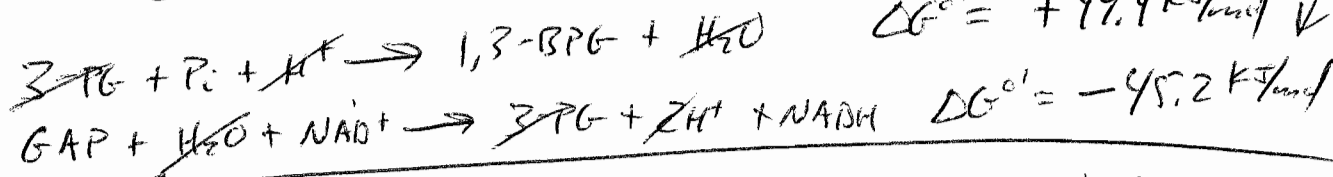 3-PG + Pi + H⁺ → 1,3-BPG + H₂O ΔG°' = +49.4 kJ/mol
GAP + H₂O + NAD⁺ → 3-PG + 2H⁺ + NADH ΔG°' = -45.2 kJ/mol